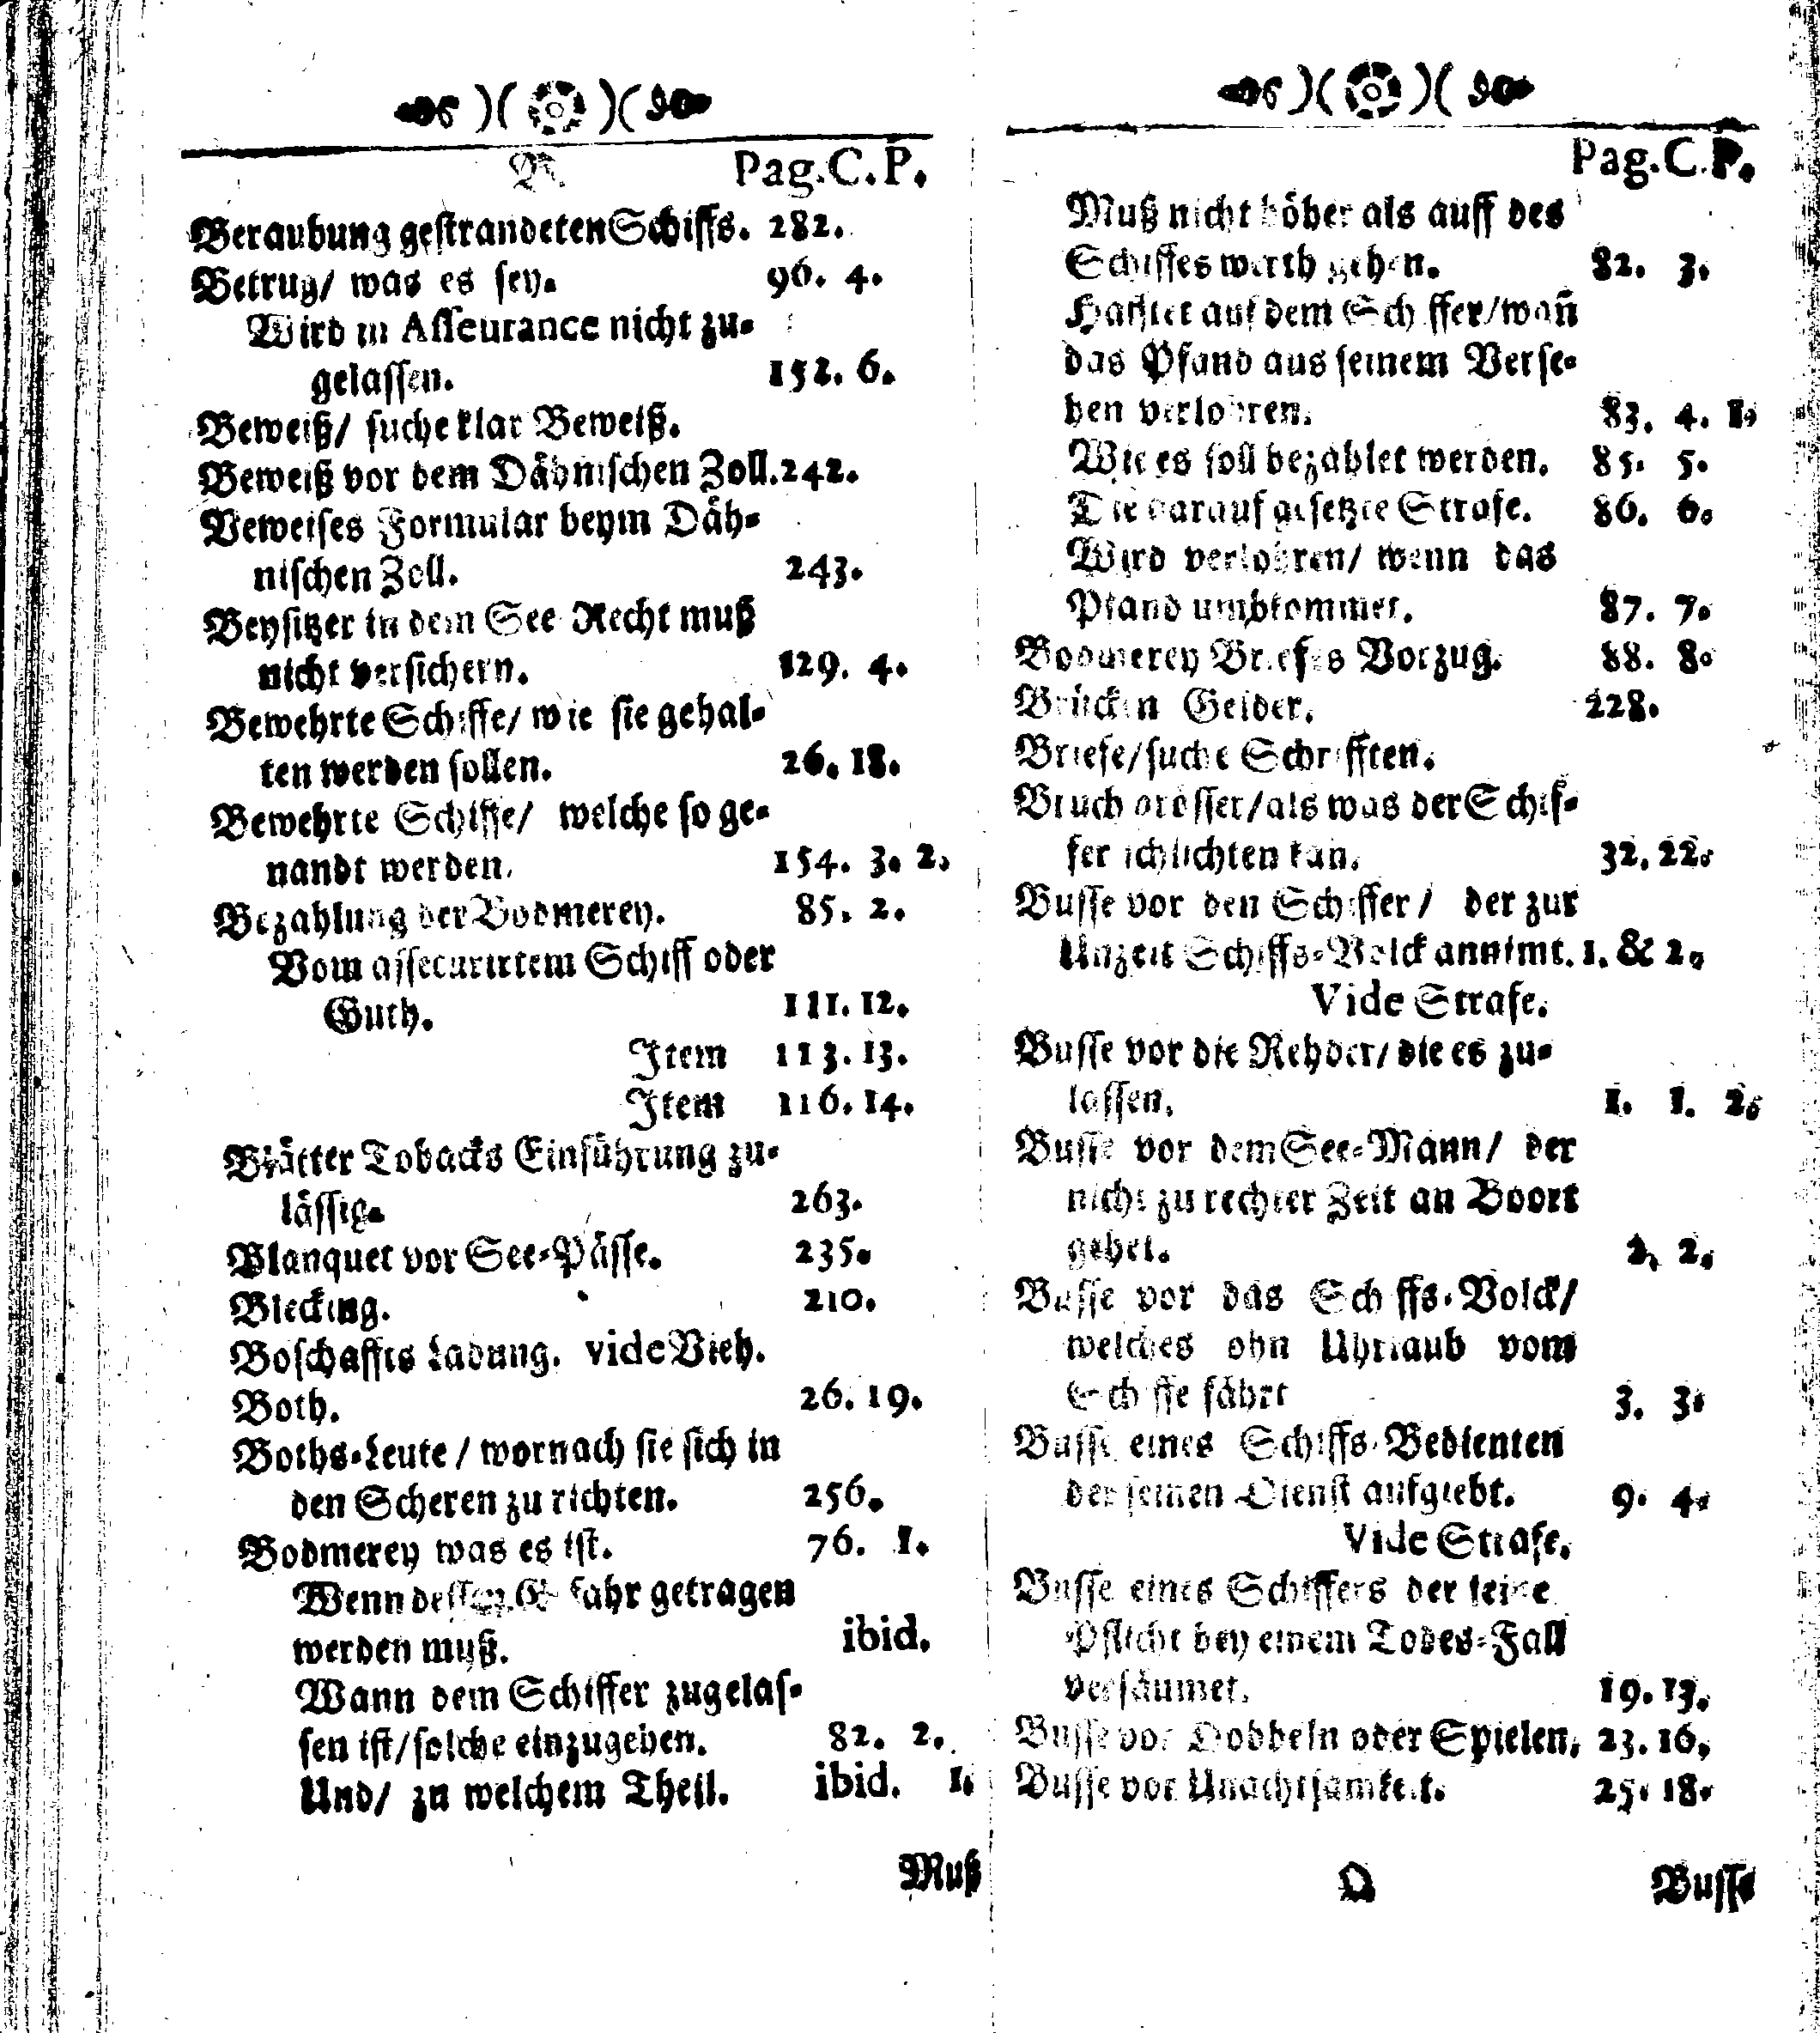 Pag. C. P.
Beraubung gestrandeten Schiffs. 282.
Betrug/ was es sey. 96. 4.
Wird in Asseurance nicht zu-
gelassen. 152. 6.
Beweiß/ suche klar Beweiß.
Beweiß vor dem Dähnischen Zoll. 242.
Beweises Formular beym Däh-
nischen Zoll. 243.
Beysitzer in dem See Recht muß
nicht versichern. 129. 4.
Bewehrte Schiffe/ wie sie gehal-
ten werden sollen. 26. 18.
Bewehrte Schiffe/ welche so ge-
nandt werden. 154. 3. 2.
Bezahlung der Bodmerey. 85. 2.
Vom assecurirtem Schiff oder
Guth. 111. 12.
Item 113. 13.
Item 116. 14.
Blätter Tobacks Einführung zu-
lässig. 263.
Blanquet vor See-Pässe. 235.
Blecking. 210.
Boschaffts Ladung. vide Vieh.
Both. 26. 19.
Boths-Leute / wornach sie sich in
den Scheren zu richten. 256.
Bodmerey was es ist. 76. 1.
Wenn dessen Gefahr getragen
werden muß. ibid.
Wann dem Schiffer zugelas-
sen ist/ solche einzugehen. 82. 2.
Und/ zu welchem Theil. ibid. 1.
Muß
Pag. C. P.
Muß nicht höher als auff des
Schiffes werth gehen. 82. 3.
Hafftet auf dem Schiffer/ wañ
das Pfand aus seinem Verse-
hen verlohren. 83. 4. 1.
Wie es soll bezahlet werden. 85. 5.
Die darauf gesetzte Strafe. 86. 6.
Wird verlohren/ wenn das
Pfand umbkommet. 87. 7.
Bodmerey Briefes Vorzug. 88. 8.
Brücken Gelder. 228.
Briefe/ suche Schrifften.
Bruch grösser/ als was der Schif-
fer schlichten kan. 32. 22.
Busse vor den Schiffer / der zur
Unzeit Schiffs-Volck annimt. 1. & 2.
Vide Strafe.
Busse vor die Rehder/ die es zu-
lassen. 1. 1. 2.
Busse vor dem See-Mann/ der
nicht zu rechter Zeit an Boort
gehet. 2. 2.
Busse vor das Schiffs-Volck/
welches ohn Uhrlaub vom
Schiffe fährt 3. 3.
Busse eines Schiffs-Bedienten
der seinen Dienst aufgiebt. 9. 4.
Vide Strafe.
Busse eines Schiffers der seine
Pflicht bey einem Todes-Fall
versäumet. 19. 13.
Busse vor Dobbeln oder Spielen. 23. 16.
Busse vor Unachtsamkeit. 25. 18.
Q Busse